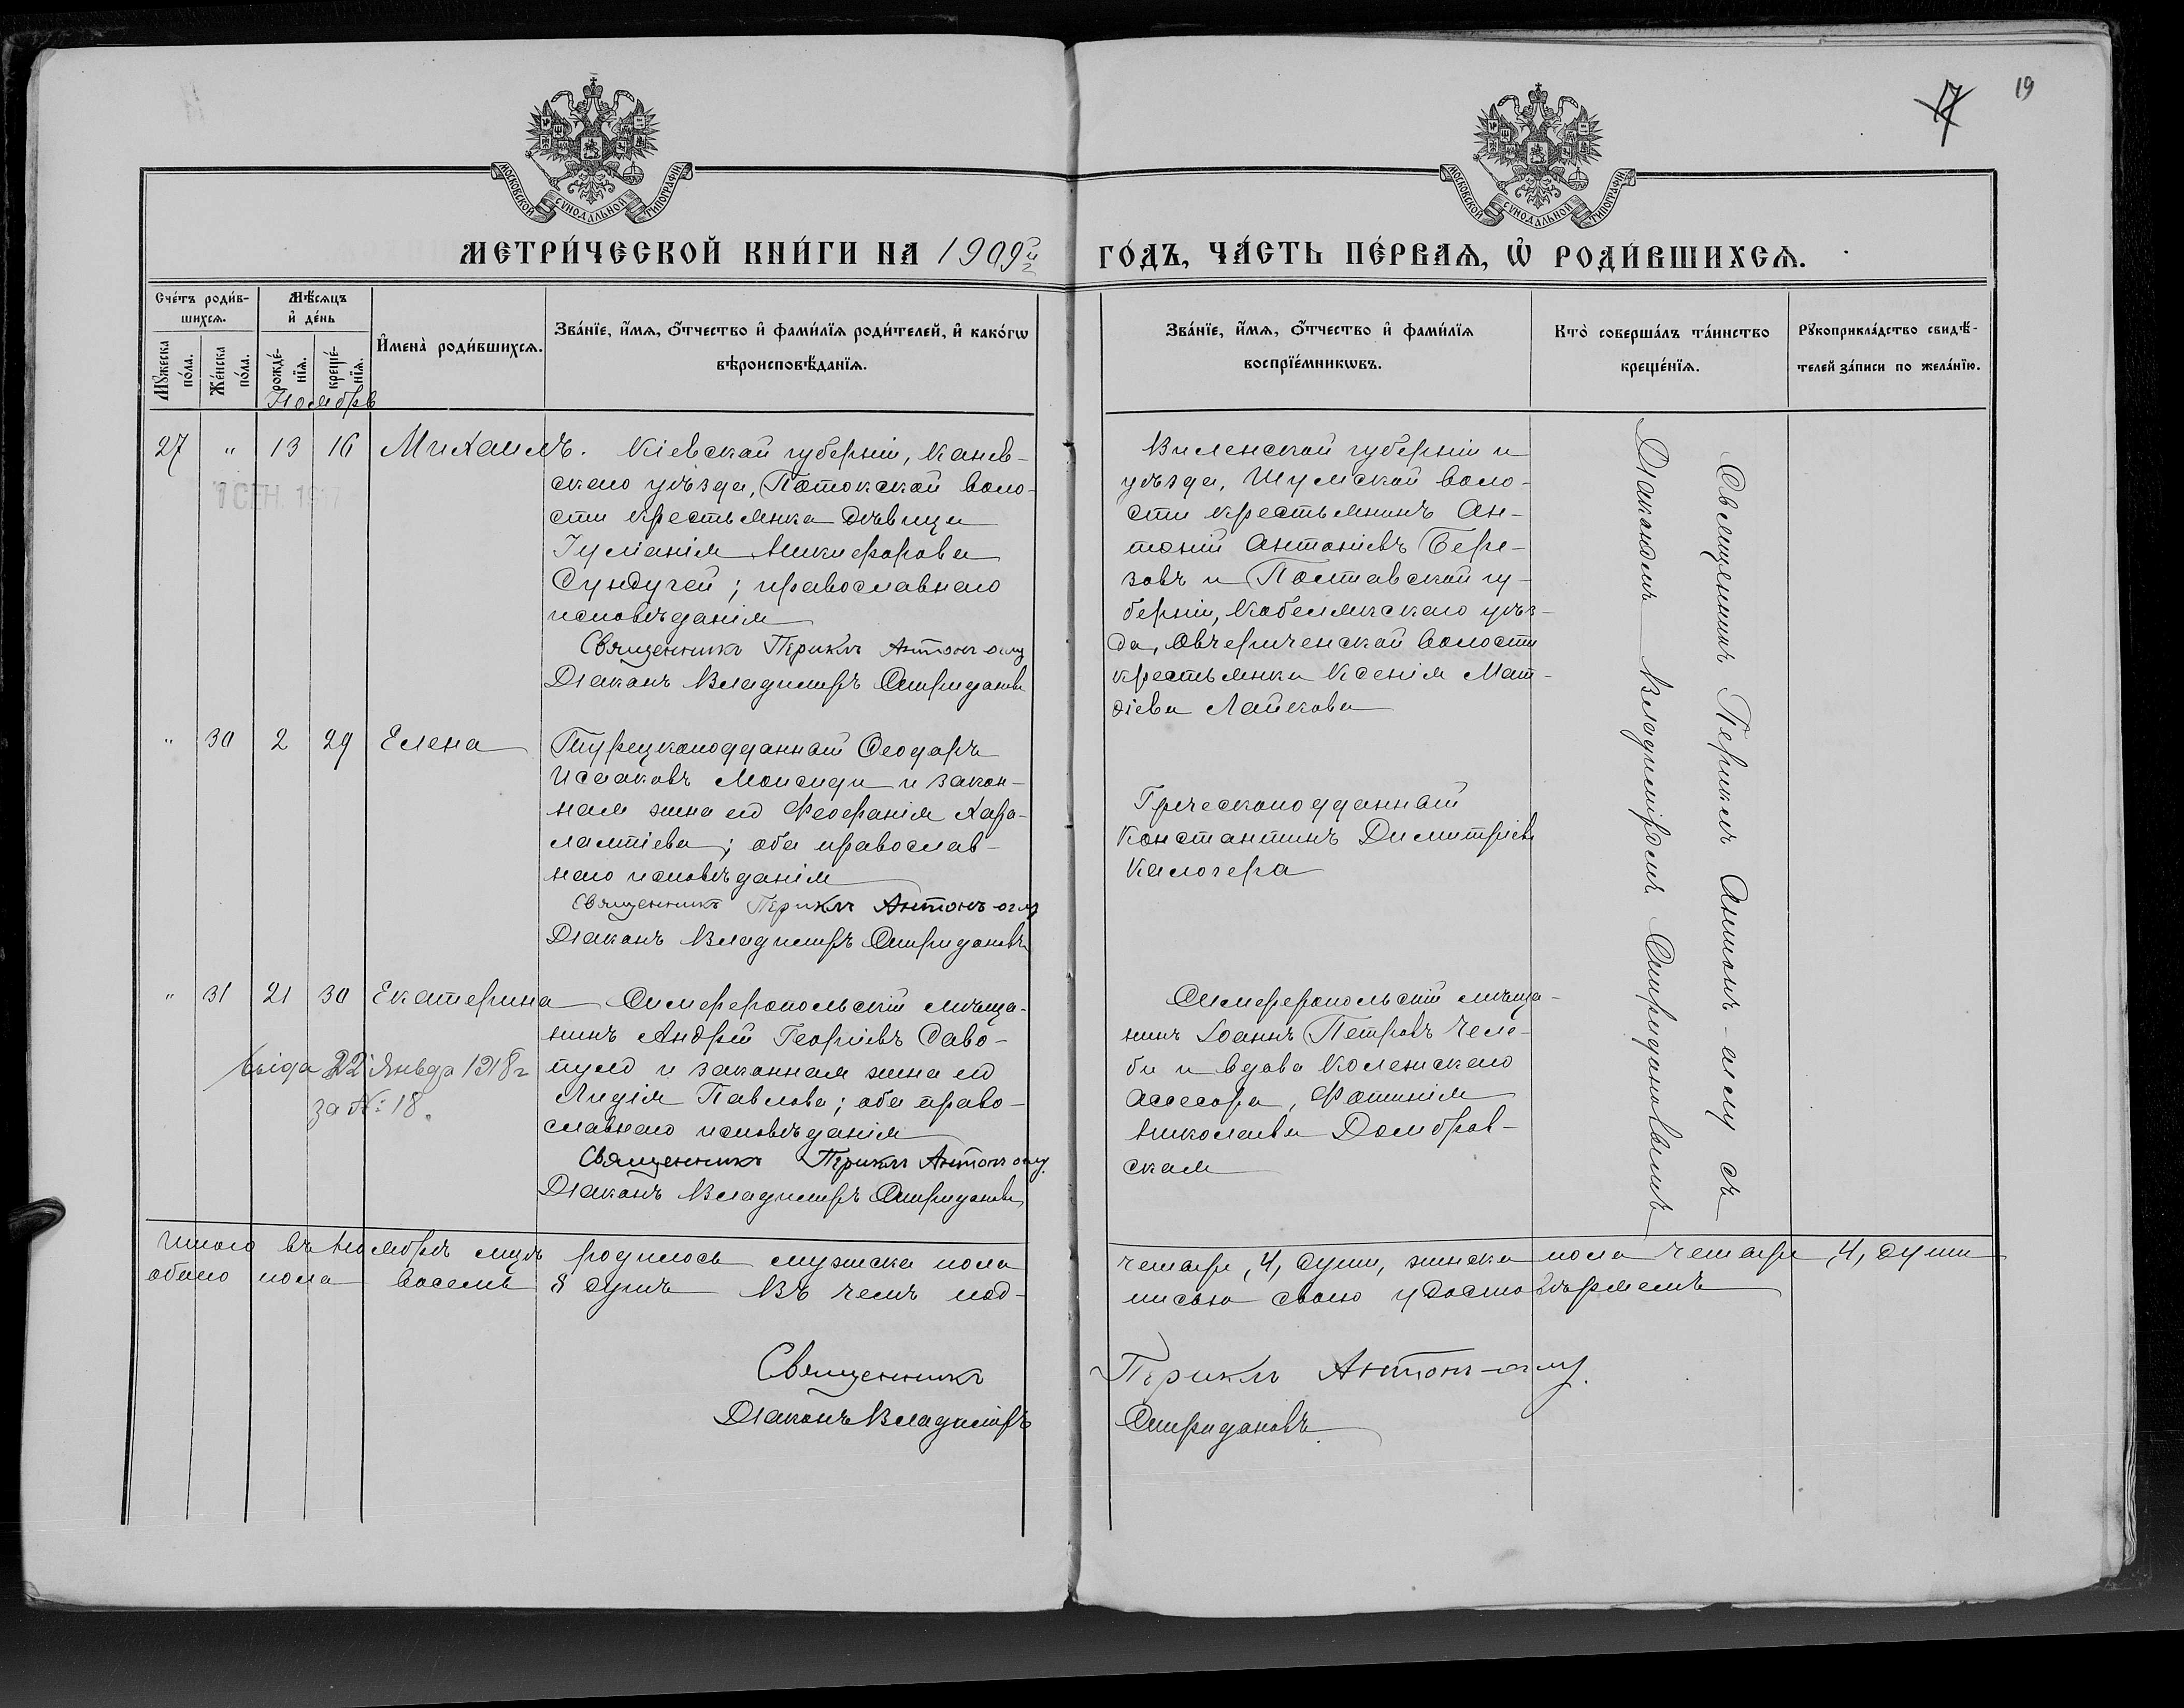 19
17
МОСКОВСКОЙ СѴНОДАЛЬНОЙ ТИПОГРАФІИ
МОСКОВСКОЙ СѴНОДАЛЬНОЙ ТИПОГРАФІИ
МЕТРИ́ЧЕСКОЙ КНИ́ГИ НА 1909й г
ГО́ДЪ, ЧА́СТЬ ПЕ́РВАѦ, Ѡ҆ РОДИ́ВШИХСѦ.
Сче́тъ роди́в-
шихсѧ.
Мꙋ́жеска по́ла.
Же́нска по́ла.
Мѣ́сѧцъ
и҆ де́нь
рожде́-
нїѧ.
креще́-
нїѧ.
И҆мена̀ роди́вшихсѧ.
Зва́нїе, и҆́мѧ, ѻ҆́тчество и҆ фами́лїѧ роди́телей, и҆ како́гѡ
вѣроисповѣ́данїѧ.
Зва́нїе, и҆́мѧ, ѻ҆́тчество и҆ фами́лїѧ
воспрїе́мникѡвъ.
Кто̀ соверша́лъ та́инство
креще́нїѧ.
Рꙋкоприкла́дство свидѣ́-
телей за́писи по жела́нїю.
Ноябрь
27 " 13 16 Михаилъ.
Кіевской губерніи, Канев-
скаго уѣзда, Потокской воло-
сти крестьянка дѣвица
Іуліанія Никифорова
Сундучей; православнаго
исповѣданія
Священникъ Периклъ Антонъ-оглу
Діаконъ Владиміръ Спиридоновъ
Виленской губерніи и
уѣзда, Шумской воло-
сти крестьянинъ Ан-
тоній Антоніевъ Бере-
зовъ и Полтавской гу-
берніи, Кобелякскаго уѣз-
да, крестьянка Ксенія Мат-
ѳіева Лайкова
" 30 2 29 Елена
Турецкоподданный Ѳеодоръ
Исааковъ Моисиди и закон-
ная жена его Феофанія Хара-
лампіева; оба православ-
наго исповѣданія
Священникъ Периклъ Антонъ-оглу
Діаконъ Владиміръ Спиридоновъ
Греческоподданный
Константинъ Димитріевъ
Калогера
" 31 21 30 Екатерина
Симферопольскій мѣща-
нинъ Андрей Георгіевъ Саво-
пуло и законная жена его
Лидія Павлова; оба право-
славнаго исповѣданія
Священникъ Периклъ Антонъ-оглу
Діаконъ Владиміръ Спиридоновъ
22 Января 1918 г
за №: 18.
Симферопольскій мѣща-
нинъ Іоаннъ Петровъ Челе-
би и вдова Колежскаго
Ассесора, Фотинія
Николаева Домбров-
ская
Священникъ Периклъ Антонъ-оглу съ
Діакономъ Владиміромъ Спиридоновымъ
Итого въ Ноябрѣ мцѣ родилось мужска пола четыре, 4, души, женска пола четыре, 4, души
обоего пола восемь 8 душъ Въ чемъ под-
писью своею удостовѣряемъ
Священникъ Периклъ Антонъ-оглу.
Діаконъ Владиміръ Спиридоновъ.